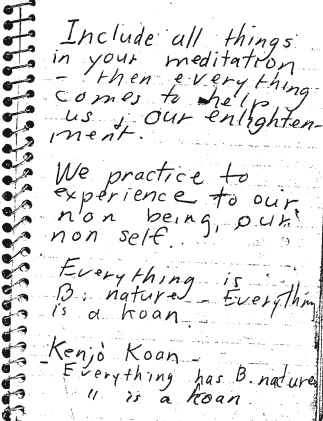 Include all things
in your meditation
- then everything
comes to help
us, our enlighten-
ment.
We practice to
experience to our
non being, our
non self.
Everything is
B. nature - Everything
is a koan
- Kenjō Koan -
Everything has B. nature
" is a koan